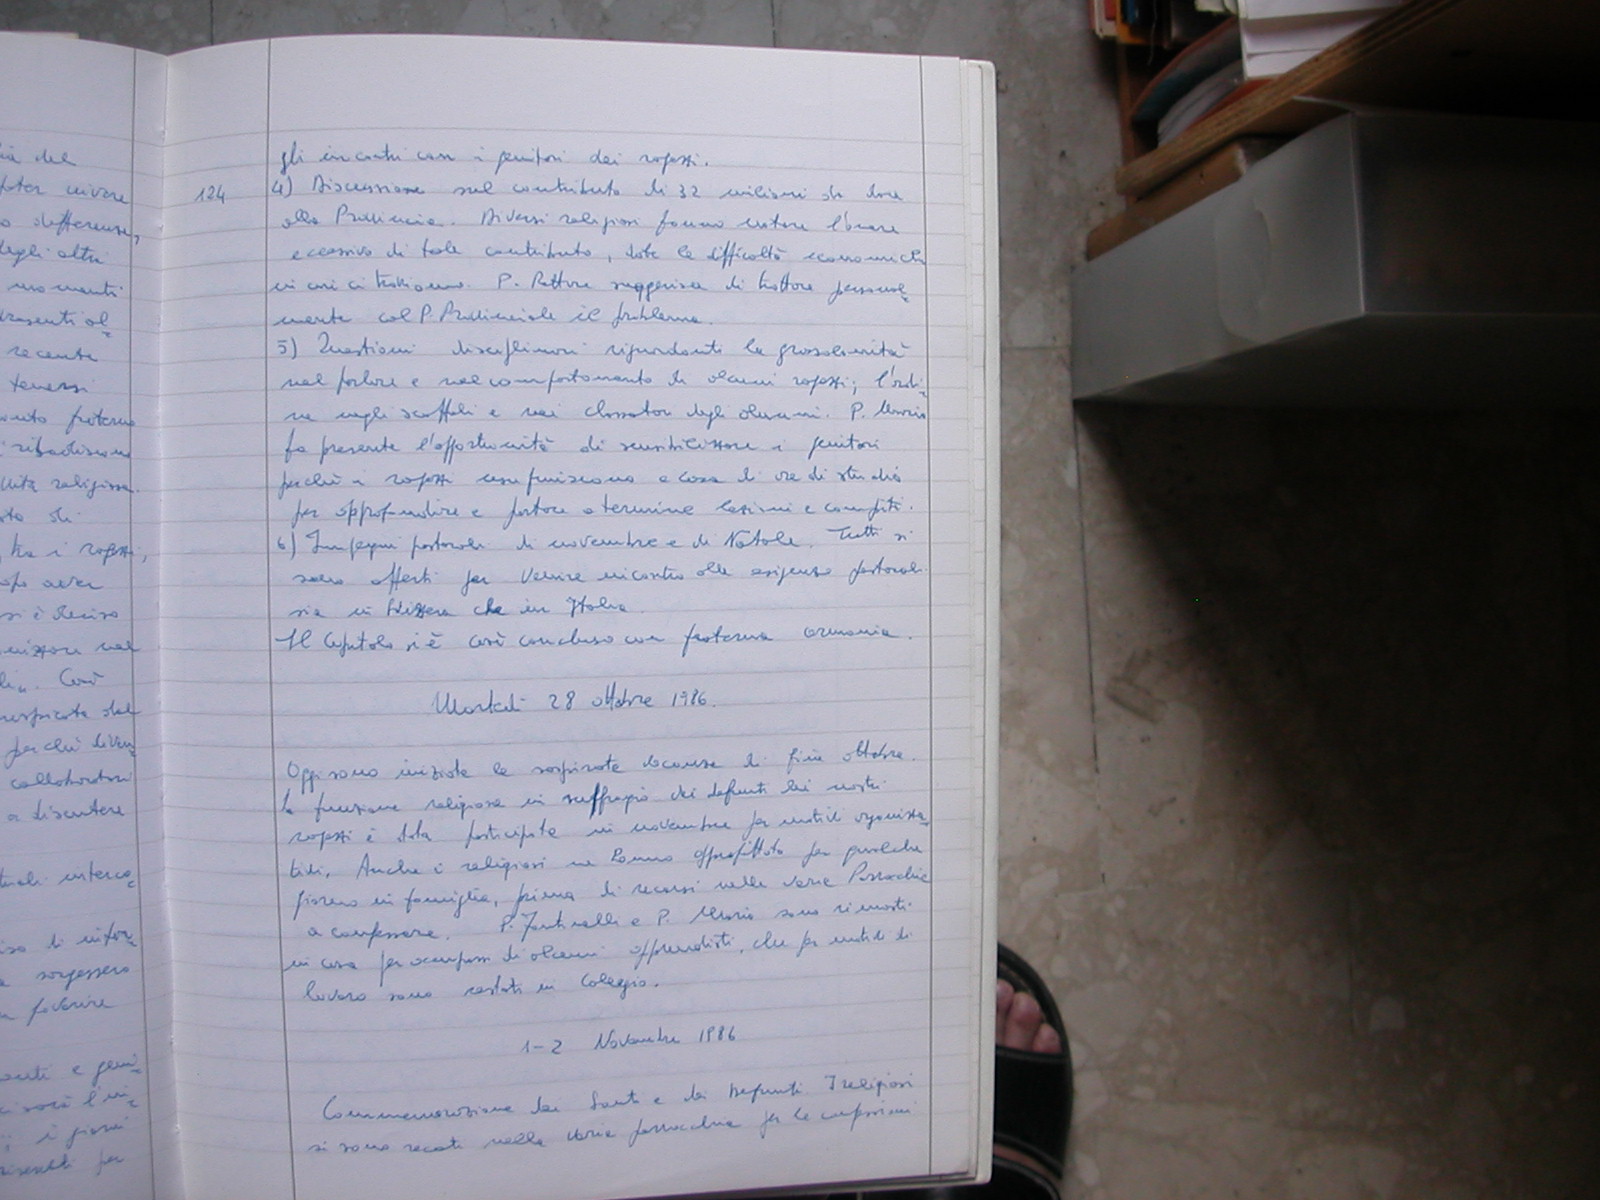 ia del
poter vivere
o differenze,
degli altri
momenti
presenti al=
recente
tenersi
fraterno
ribadiscono
vita religiosa.
di
tra i ragazzi,
dopo aver
si è deciso
nel
Così
perchè
collaboratori
a discutere
di infor=
sorgessero
favorire
e geni=
i giorni
per
124
gli incontri con i genitori dei ragazzi.
4) Discussione sul contributo di 32 milioni da dare
alla Provincia. Diversi religiosi fanno notare l'onere
eccessivo di tale contributo, date le difficoltà economiche
in cui ci troviamo. P. Rettore suggerisce di trattare personal=
mente col P. Provinciale il problema.
5) Questioni disciplinari riguardanti la grossolanità
nel parlare e nel comportamento di alcuni ragazzi; l'ordi=
ne negli scaffali e nei classatori degli alunni. P. Mario
fa presente l'opportunità di sensibilizzare i genitori
perchè i ragazzi usufruiscano a casa di ore di studio
per approfondire e portare a termine lezioni e compiti.
6) Impegni pastorali di novembre e di Natale. Tutti si
sono offerti per venire incontro alle esigenze pastorali
sia in Svizzera che in Italia.
Il Capitolo si è così concluso con fraterna armonia.
Martedì 28 ottobre 1986.
Oggi sono iniziate le sospirate vacanze di fine ottobre.
La funzione religiosa in suffragio dei defunti dei nostri
ragazzi è stata posticipata in novembre per motivi organizza=
tivi. Anche i religiosi ne hanno approfittato per qualche
giorno in famiglia, prima di recarsi nelle varie Parrocchie
a confessare. P. Fantinelli e P. Mario sono rimasti
in casa per occuparsi di alcuni apprendisti, che per motivi di
lavoro sono restati in Collegio.
1-2 Novembre 1986
Commemorazione dei Santi e dei Defunti. I religiosi
si sono recati nelle varie parrocchie per le confessioni